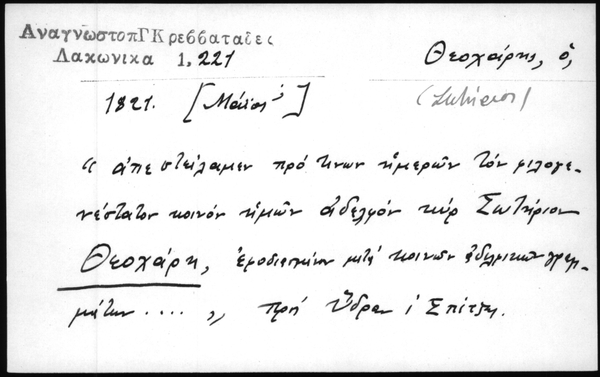 ΑναγνωστοπΓΚρεββαταδες
Λακωνικα 1,221
Θεοχάρης, ὁ,
1821. [Μάϊος;]
(Σωτήριος)
« ἀπεστείλαμεν πρό τινων ἡμερῶν τόν φιλογε-
νέστατον κοινόν ἡμῶν ἀδελφόν κύρ Σωτήριον
Θεοχάρη, ἐφοδιασμένον μετά κοινῶν ἀδελφικῶν γραμ-
μάτων .... „ πρός Ὕδραν ἤ Σπέτσας.